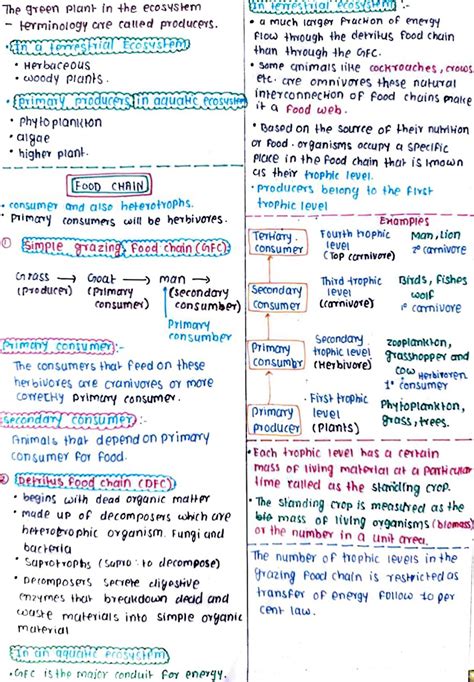 The green plant in the ecosystem
- terminology are called producers.
• In a terrestrial Ecosystem
• Herbaceous
• woody plants.
• primary producers in aquatic ecosystem
• Phytoplankton
• algae
• higher plant.
FOOD CHAIN
• consumer and also heterotrophs.
• primary consumers will be herbivores.
① Simple grazing food chain (GFC):
Grass → Goat → man
(producer) (Primary consumer) (secondary consumber)
Primary consumber
Primary consumer:-
The consumers that feed on these
herbivores are cranivores or more
correctly primary consumer.
secondary consumer:-
Animals that depend on primary
consumer for food.
② Detritus food chain (DFC)
• begins with dead organic matter
• made up of decomposers which are
heterotrophic organism. Fungi and
bacteria
• saprotrophs (sapro: to decompose)
• Decomposers secrete digestive
enzymes that breakdown dead and
waste materials into simple organic
material
In an aquatic ecosystem
• GFC is the major conduit for energy.
In terrestrial ecosystem:-
• a much larger fraction of energy
flow through the detritus food chain
than through the GFC.
• some animals like cockroaches, crows
etc. are omnivores these natural
interconnection of food chains make
it a food web.
• Based on the source of their nutrition
or food. organisms occupy a specific
place in the food chain that is known
as their trophic level.
• producers belong to the first
trophic level
Examples
Tertiary consumer
Fourth trophic level
(Top carnivore)
Man, Lion
2° carnivore
Secondary consumer
Third trophic level
(carnivore)
Birds, fishes
wolf
1° carnivore
Primary consumbr
Secondary trophic level
(Herbivore)
zooplankton,
grasshopper and
cow
1° consumer
Primary producer
First trophic level
(Plants)
Phytoplankton,
grass, trees.
• Each trophic level has a certain
mass of living material at a particular
time called as the standing crop.
• The standing crop is measured as the
mass of living organisms (biomass)
or the number in a unit area.
The number of trophic levels in the
grazing food chain is restricted as
transfer of energy follow 10 per
cent law.